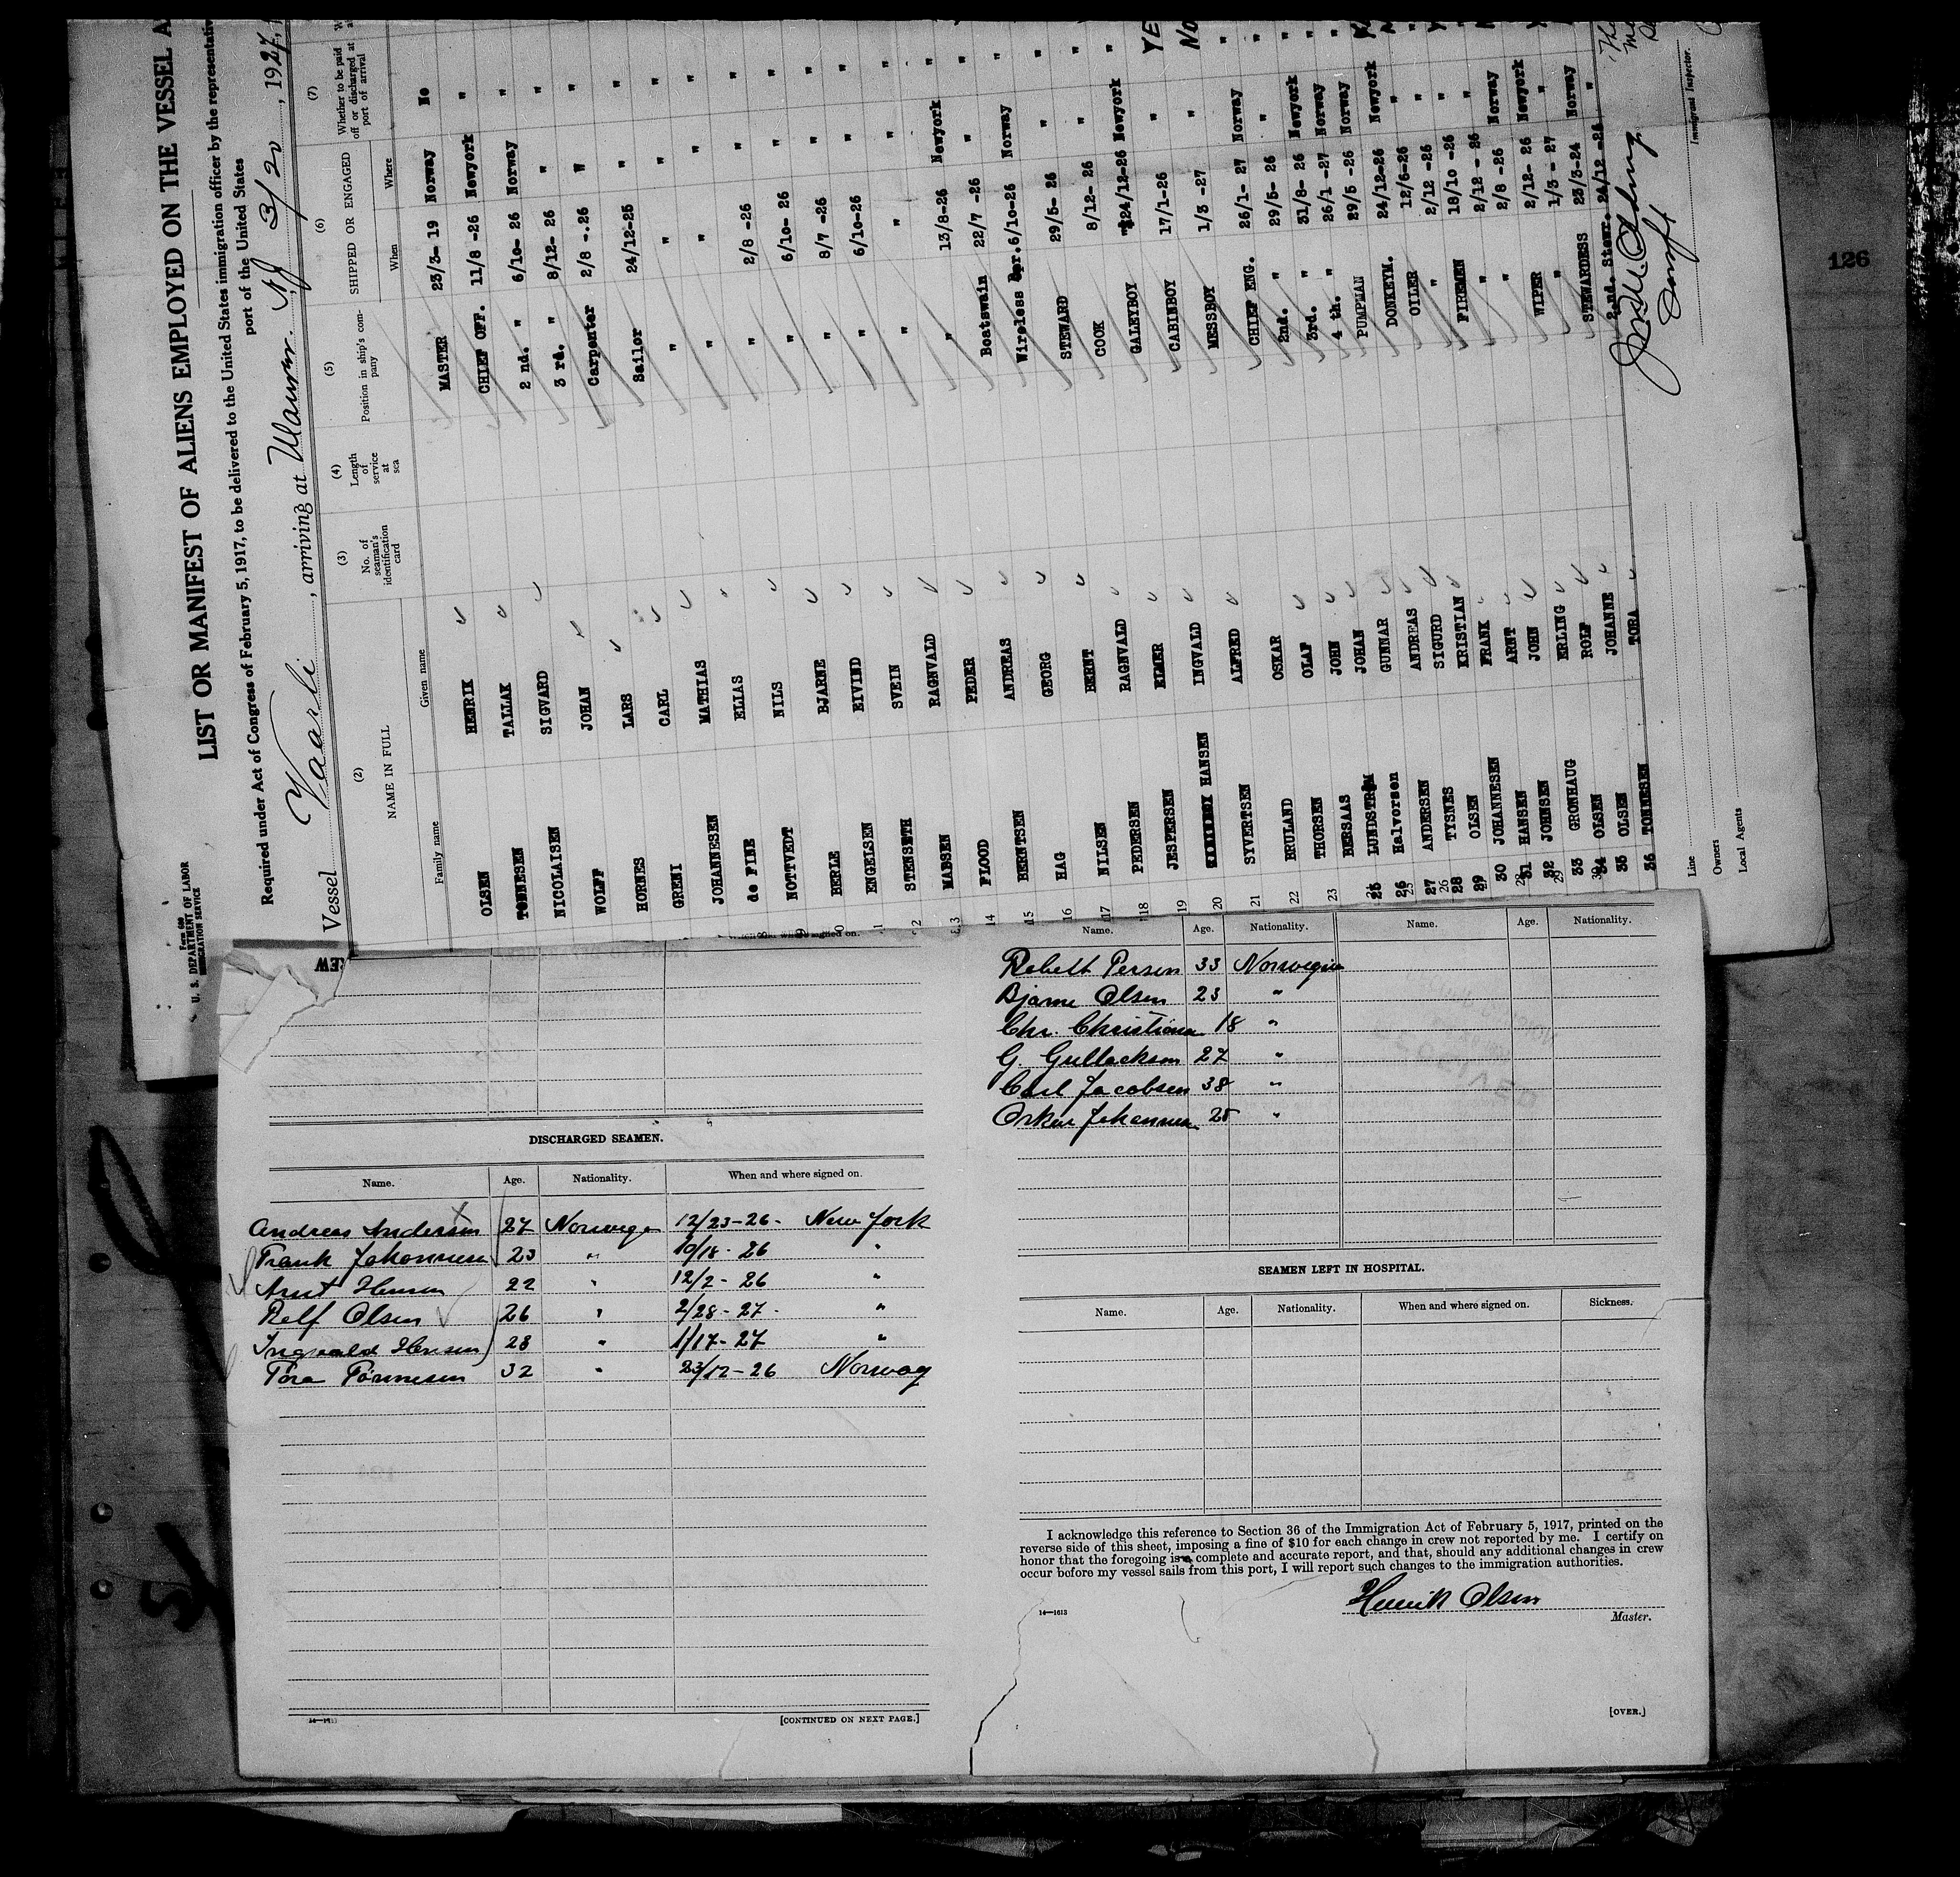 Form 680
U. S. DEPARTMENT OF LABOR
IMMIGRATION SERVICE
LIST OR MANIFEST OF ALIENS EMPLOYED ON THE VESSEL A
Required under Act of Congress of February 5, 1917, to be delivered to the United States immigration officer by the representativ
port of the United States
Vessel Vaarli, arriving at 3/20, 1927,
(2) (3) (4) (5) (6) (7)
NAME IN FULL No. of seaman's identification card Length of service at sea Position in ship's company SHIPPED OR ENGAGED Whether to be paid off or discharged at port of arrival
Family name Given name When Where
OLSEN HENRIK MASTER 23/3- 19 Norway No
TONNESEN TALLAK CHIEF OFF. 11/8 -26 Newyork "
NICOLAISEN SIGVARD 2 nd. " 6/10- 26 Norway "
WOLFF JOHAN 3 rd. " 8/12- 26 " "
HORNES LARS Carpenter 2/8 -.26 " "
GRENI CARL Sailor 24/12-25 " "
JOHANNESEN MATHIAS " " " "
de FINE ELIAS " " " "
NOTTVEDT NILS " 2/8 -26 " "
BERLE BJARNE " 6/10- 26 " "
ENGELSEN EIVIND " 8/7 -26 " "
STENSETH SVEIN " 6/10-26 " "
MADSEN RAGNVALD " " " "
FLOOD PEDER " 13/8-26 Newyork "
BERNTSEN ANDREAS Boatswain 22/7 -26 " "
HAG GEORG Wireless Opr. 6/10-26 Norway "
NILSEN BERNT STEWARD 29/5- 26 " "
PEDERSEN RAGNVALD COOK 8/12- 26 " "
JESPERSEN ELMER GALEYBOY 24/12-26 Newyork "
HANSEN INGVALD CABINBOY 17/1-26 " YE
SYVERTSEN ALFRED MESSBOY 1/3 -27 " No
BRULAND OSKAR CHIEF ENG. 26/1- 27 Norway "
THORSEN OLAF 2nd. " 29/5- 26 " "
BERSAAS JOHN 3rd. " 31/8- 26 Newyork "
25 LUNDSTRØM JOHAN 4 th. " 26/1 -27 Norway "
26 Halvorsen GUNNAR PUMPMAN 29/5 -26 Norway
27 ANDERSEN ANDREAS DONKEYM. 24/12-26 Newyork
28 TYSNES SIGURD OILER 12/6-26 "
29 OLSEN KRISTIAN " 2/12 -26 "
30 JOHANNESEN FRANK FIREMEN 18/10 -26 "
31 HANSEN ARNT " 2/12 - 26 "
32 JOHNSEN JOHN " 2/8 -26 Norway
33 GRONHAUG ERLING WIPER 2/12- 26 Newyork
34 OLSEN ROLF " 1/3 - 27 "
35 OLSEN JOHANNE STEWARDESS 23/3-24 Norway
36 TONNESEN TORA 2.nd. Stewr. 24/12 -26 "
Line
Owners
Local Agents
Immigrant Inspector.
126
DISCHARGED SEAMEN.
Name. Age. Nationality. When and where signed on.
Andreas Andersen 27 Norwegn 12/23-26- New York
Frank Johannesen 23 " 10/18- 26 "
Arnt Hansen 22 " 12/2- 26 "
Rolf Olsen 26 " 2/28-27- "
Ingvald Hansen 28 " 1/17-27 "
Tora Tönnesen 32 " 23/12-26 Norway
[CONTINUED ON NEXT PAGE.]
Name. Age. Nationality. Name. Age. Nationality.
Robert Persen 33 Norwegian
Bjarne Olsen 23 "
Chr. Christiansen 18 "
G. Gullacksen 27 "
Carl Jacobsen 38 "
Oskar Johannesen 25 "
SEAMEN LEFT IN HOSPITAL.
Name. Age. Nationality. When and where signed on. Sickness.
I acknowledge this reference to Section 36 of the Immigration Act of February 5, 1917, printed on the
reverse side of this sheet, imposing a fine of $10 for each change in crew not reported by me. I certify on
honor that the foregoing is a complete and accurate report, and that, should any additional changes in crew
occur before my vessel sails from this port, I will report such changes to the immigration authorities.
Henrik Olsen
Master.
14—1613
[OVER.]